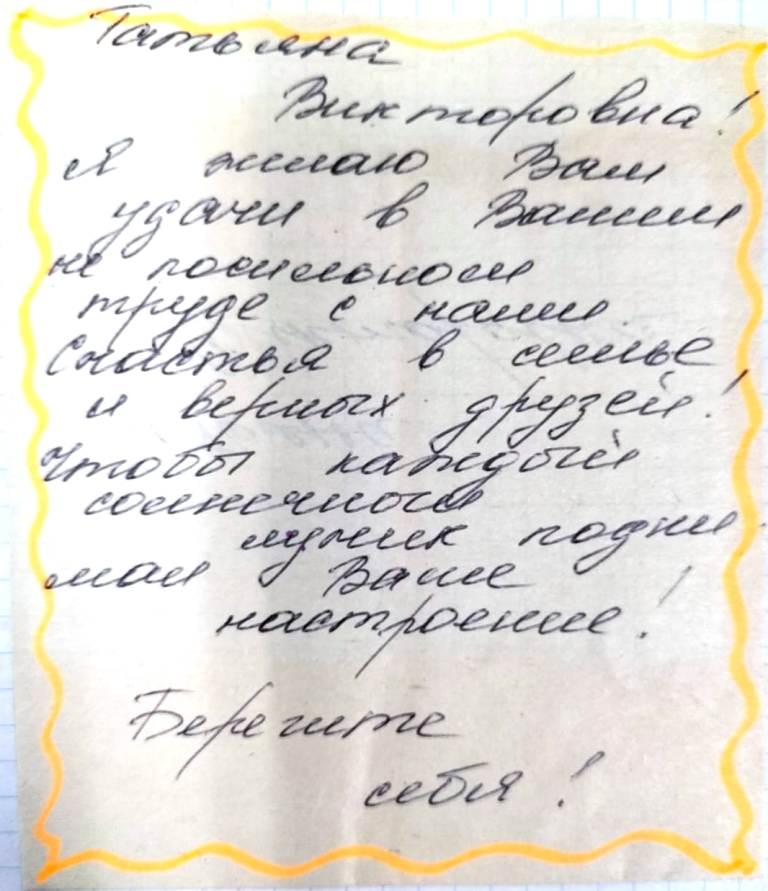 Татьяна
Викторовна!
Я желаю Вам
удачи в Вашем
не посильном
труде с нами
Счастья в семье
и верных друзей!
Чтобы каждый
солнечный
лучик подни
мал Ваше
настроение!
Берегите
себя!